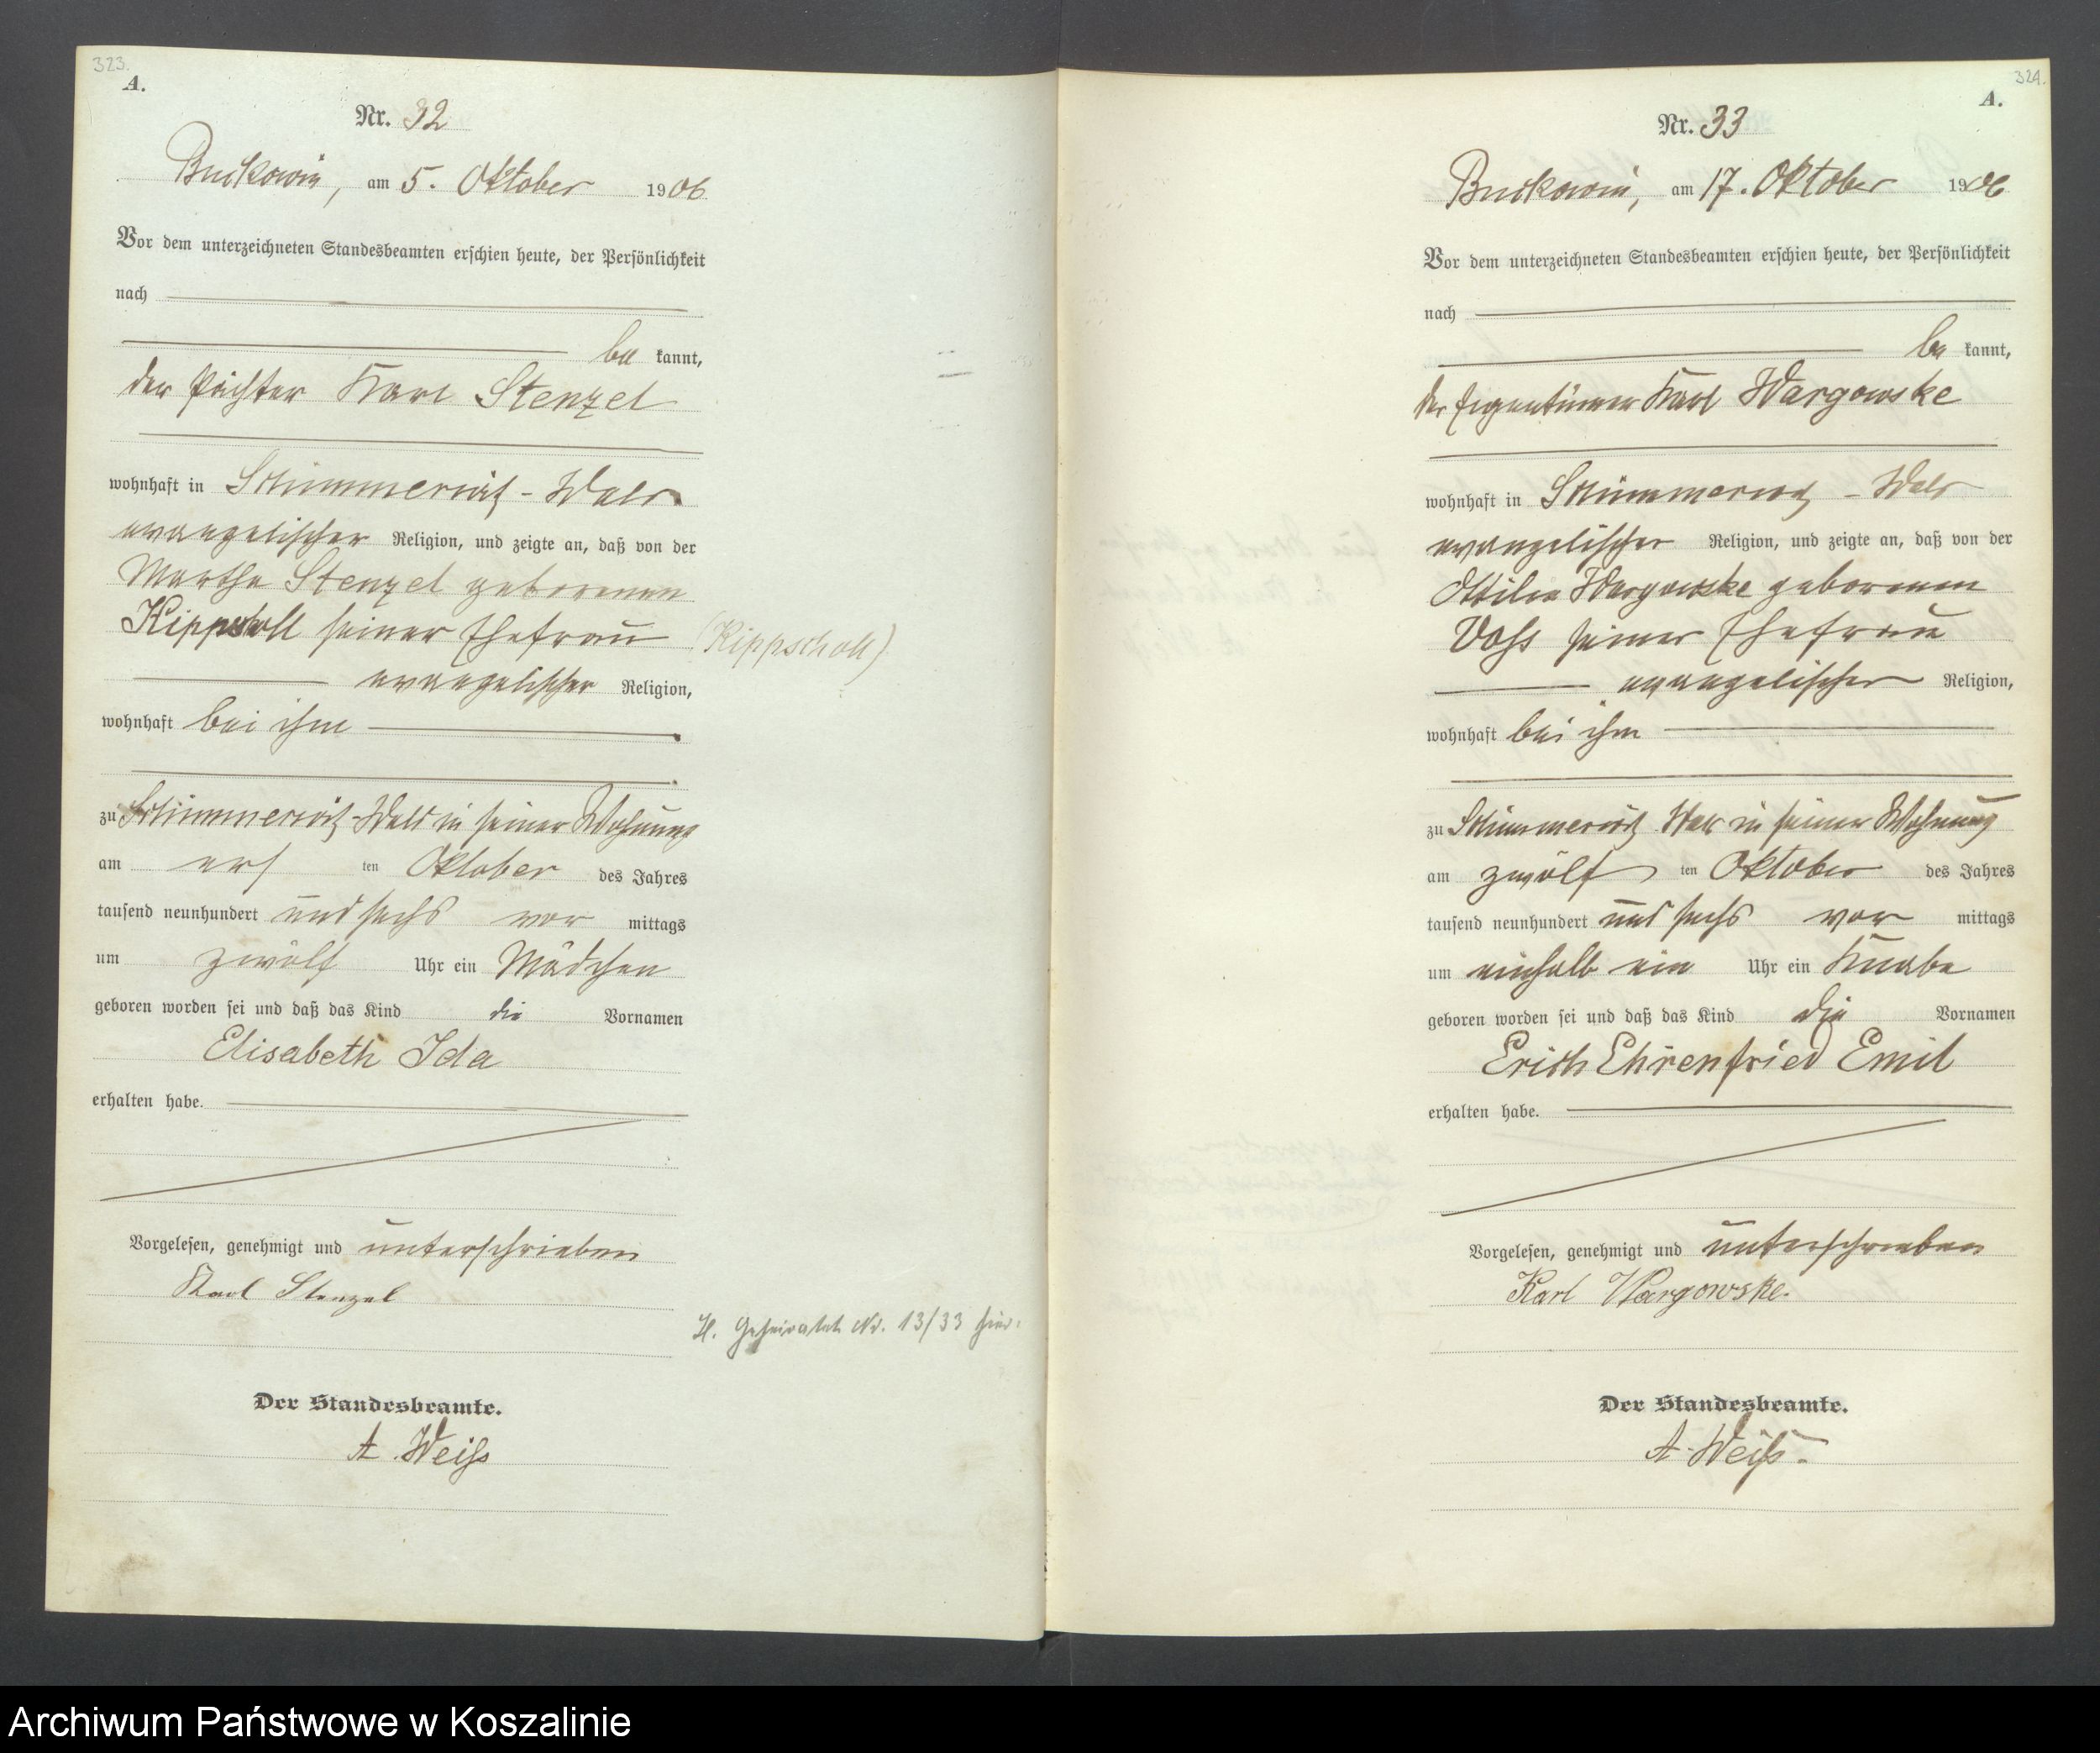 323.
A.
Nr. 32
Buckowin, am 5. Oktober 1906
Vor dem unterzeichneten Standesbeamten erschien heute, der Persönlichkeit
nach
be kannt,
der Pächter Karl Stenzel
wohnhaft in Schimmerwitz - Wald
evangelischer Religion, und zeigte an, daß von der
Martha Stenzel geborenen
Kippscholl seiner Ehefrau (Kippscholl)
evangelischer Religion,
wohnhaft bei ihm
zu Schimmerwitz-Wald in seiner Wohnung
am ers ten Oktober des Jahres
tausend neunhundert und sechs vor mittags
um zwölf Uhr ein Mädchen
geboren worden sei und daß das Kind die Vornamen
Elisabeth Ida
erhalten habe.
Vorgelesen, genehmigt und unterschrieben
Karl Stenzel
H. Geheiratet Nr. 13/33 hier.
Der Standesbeamte.
A. Weiß
324.
A.
Nr. 33
Buckowin, am 17. Oktober 1906
Vor dem unterzeichneten Standesbeamten erschien heute, der Persönlichkeit
nach
be kannt,
der Eigentümer Karl Wargowske
wohnhaft in Schimmerwitz - Wald
evangelischer Religion, und zeigte an, daß von der
Ottilie Wargowske geborenen
Voß seiner Ehefrau
evangelischer Religion,
wohnhaft bei ihm
zu Schimmerwitz Wald in seiner Wohnung
am zwölf ten Oktober des Jahres
tausend neunhundert und sechs vor mittags
um einhalb ein Uhr ein Knabe
geboren worden sei und daß das Kind die Vornamen
Erich Ehrenfried Emil
erhalten habe.
Vorgelesen, genehmigt und unterschrieben
Karl Wargowske.
Der Standesbeamte.
A. Weiß.
Archiwum Państwowe w Koszalinie